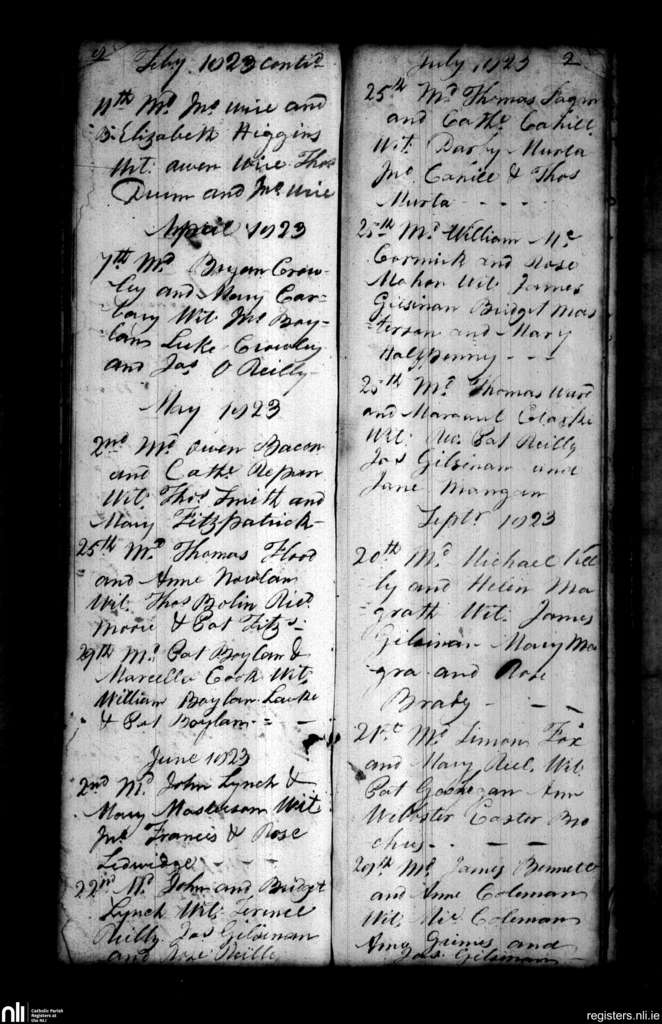 2
Feby 1823 contd
11th Md Jno Wire and
Elizabeth Higgins
Wit. Owen Wire Thos
Dunn and Jno Wire
April 1823
7th Md Bryan Crow-
ley and Mary Car-
bary Wit Jno Boy-
lan Luke Crowley
and Jas O Reilly
May 1823
2nd Md Owen Bacon
and Cathe
Wit. Thos Smith and
Mary Fitzpatrick-
25th Md Thomas Flood
and Anne Nowlan
Wit. Thos Bolin Ricd
Moore & Pat Fitzs-
29th Md Pat Boylan &
Marcella Cook Wit.
William Boylan
& Pat Boylan - -
June 1823
2nd Md John Lynch &
Mary Masterson Wit.
Jno Francis & Rose
Ledwidge - - -
22nd Md John and Bridget
Lynch Wit. Terence
Reilly Jas Gilsinan
and Rose Reilly
July 1823 2
25th Md Thomas
and Cathe Cahill
Wit. Darby Murta
Jno Cahill & Thos
Murta - - - -
25th Md William Mc
Cormick and Rose
Mahon Wit. James
Gilsinan Bridget Mas
-terson and Mary
Halfpenny - - -
25th Md Thomas Ward
and Margaret Clarke
Wit. Pat Reilly
Jas Gilsinan and
Jane Mangan
Septr 1823
20th Md Michael Kel
ly and Helen Ma
grath Wit. James
Gilsinan Mary Ma
gra and Rose
Brady - - -
21st Md Simon Fox
and Mary Wit.
Pat Gaghegan Ann
Webster Easter Bro
phy - - -
29th Md James Bennett
and Anne Coleman
Wit. Coleman
Amy Grimes and
Jas. Gilsinan
nli
Catholic Parish
Registers at
the NLI
registers.nli.ie